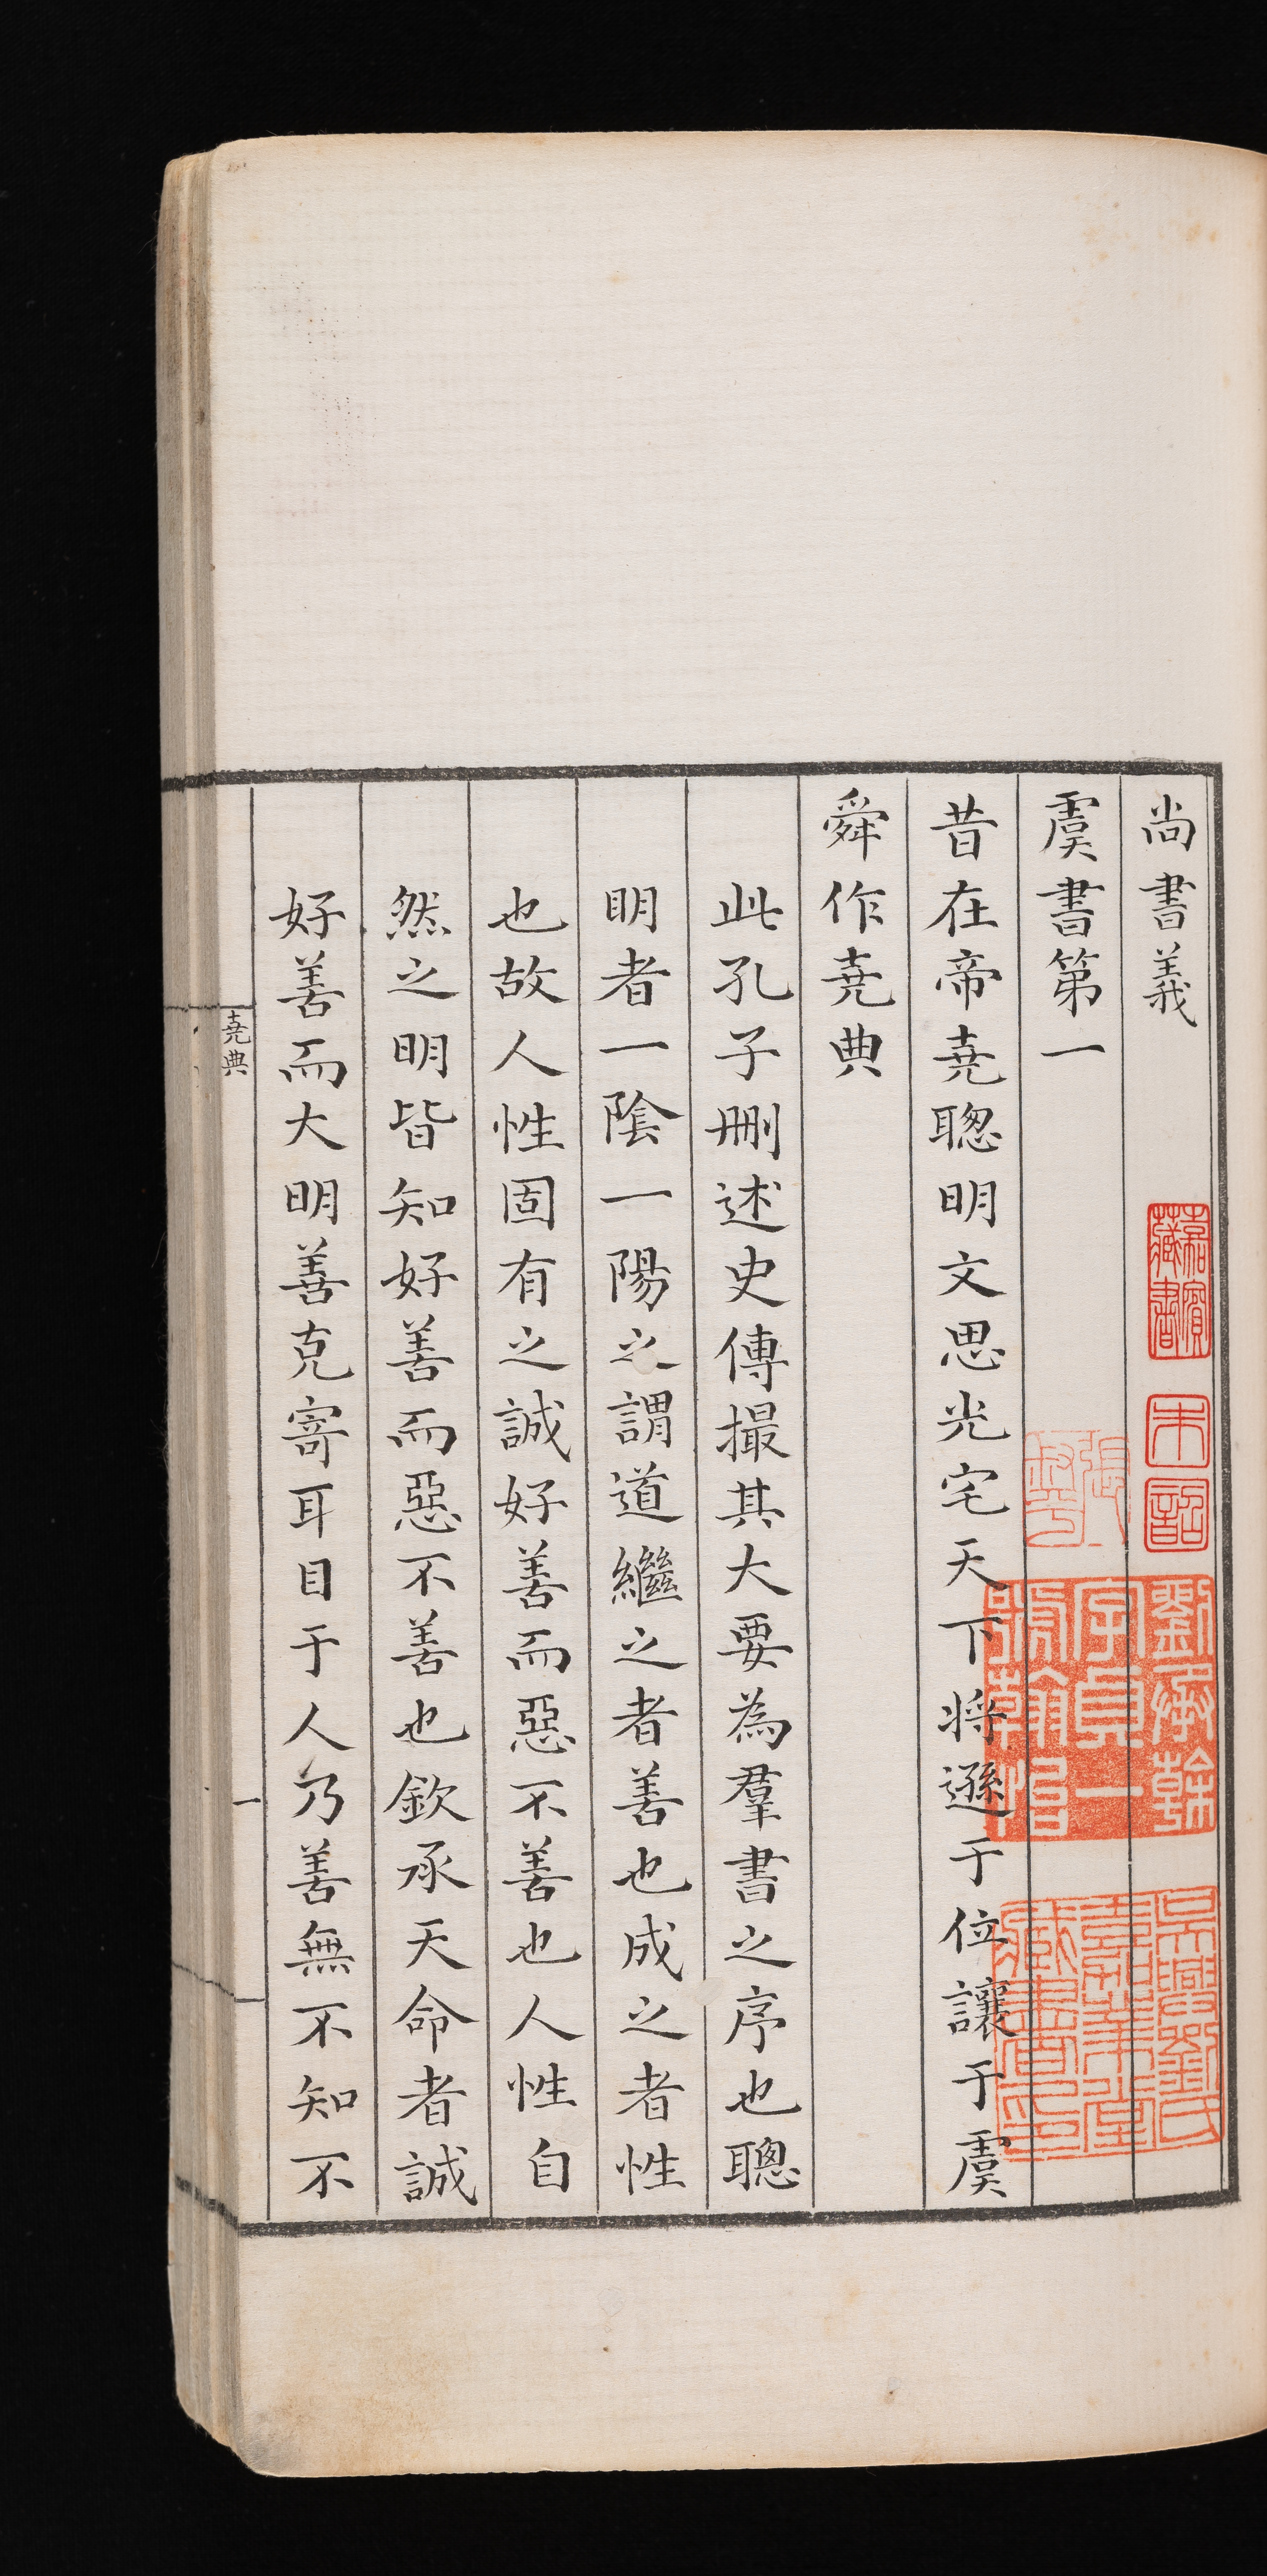 尚書義
虞書第一
昔在帝堯聰明文思光宅天下将遜于位讓于虞
舜作堯典
此孔子刪述史傳撮其大要為羣書之序也聰
明者一陰一陽之謂道繼之者善也成之者性
也故人性固有之誠好善而惡不善也人性自
然之明皆知好善而惡不善也欽承天命者誠
好善而大明善克寄耳目于人乃善無不知不
堯典
一
劉承幹
字貞一
號翰怡
吳興劉氏
嘉業堂
藏書印